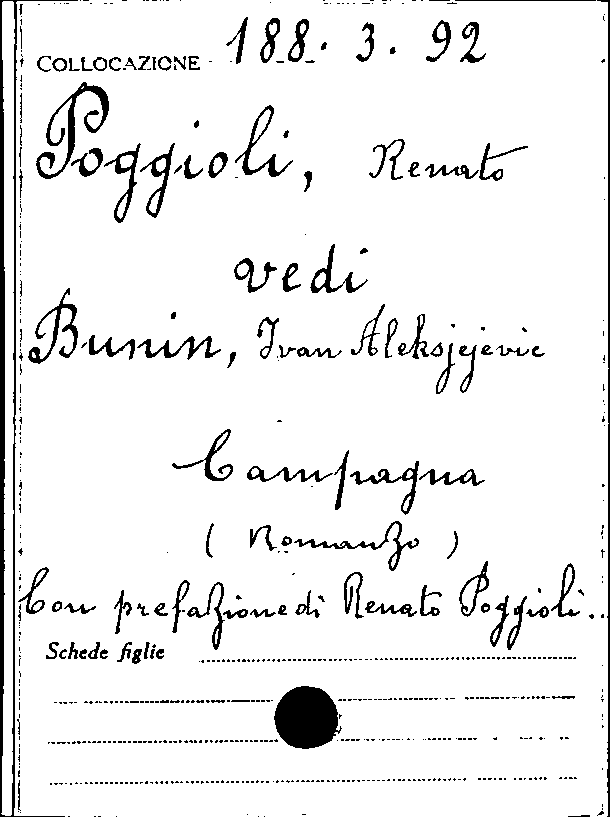 COLLOCAZIONE 188. 3. 92
Poggioli, Renato
vedi
Bunin, Ivan Aleksjejevic
Campagna
( Romanzo )
Con prefazione di Renato Poggioli..
Schede figlie